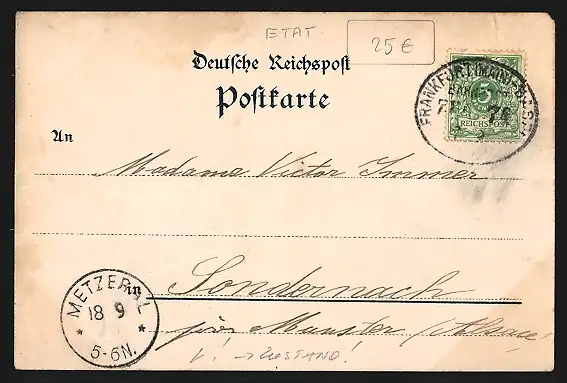 ETAT.
25€
Deutsche Reichspost
Postkarte
FRANKFURT (MAIN)-BASEL
REICHSPOST
An
Madame Victor Immer
in Sondernach
METZERAL
18 9
* *
5-6N.
près Munster (Alsace)
V! → ZUSTAND!